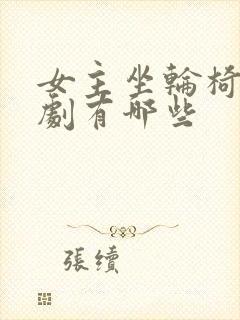 女主坐輪椅
劇有哪些
張續